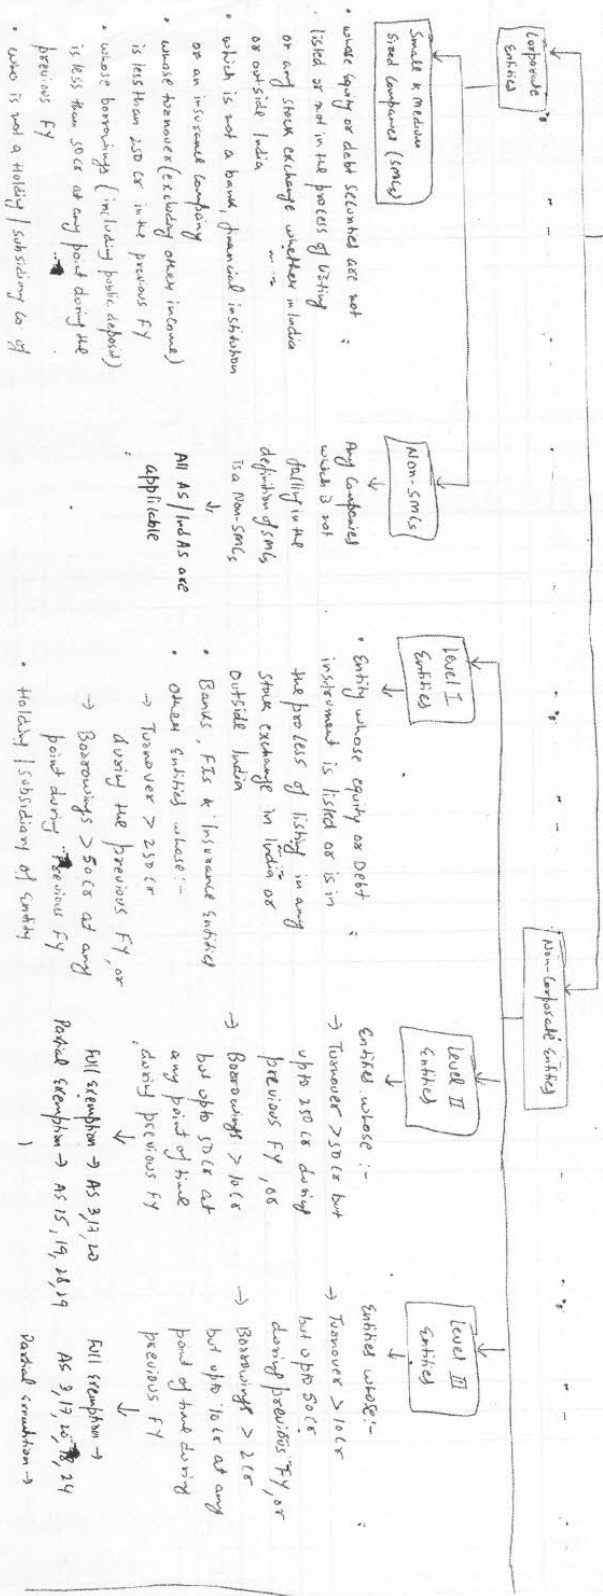 Corporate
Entities
Small & Medium
Sized Companies (SMCs)
• whose equity or debt securities are not
listed or not in the process of listing
or any stock exchange whether in India
or outside India
• which is not a bank, financial institution
or an insurance company
• whose turnover (excluding other income)
is less than 250 cr in the previous FY
• whose borrowings (including public deposit)
is less than 50 cr at any point during the
previous FY
• who is not a Holding / subsidiary co of
Non-SMCs
Any companies
which is not
falling in the
definition of SMCs
is a Non-SMCs
All AS / Ind AS are
applicable
Non-Corporate Entities
Level I
Entities
• Entity whose equity or Debt
instrument is listed or is in
the process of listing in any
stock exchange in India or
outside India
• Banks, FIs & Insurance Entities
• other Entities whose:-
→ Turnover > 250 cr
during the previous FY, or
→ Borrowings > 50 cr at any
point during previous FY
• Holding / Subsidiary of Entity
Level II
Entities
Entities whose:-
→ Turnover > 50 cr but
upto 250 cr during
previous FY, or
→ Borrowings > 10 cr
but upto 50 cr at
any point of time
during previous FY
Full Exemption → AS 3, 17, 20
Partial Exemption → AS 15, 19, 28, 29
Level III
Entities
Entities whose:-
→ Turnover > 10 cr
but upto 50 cr
during previous FY, or
→ Borrowings > 2 cr
but upto 10 cr at any
point of time during
previous FY
Full Exemption →
AS 3, 17, 20, 18, 24
Partial Exemption →